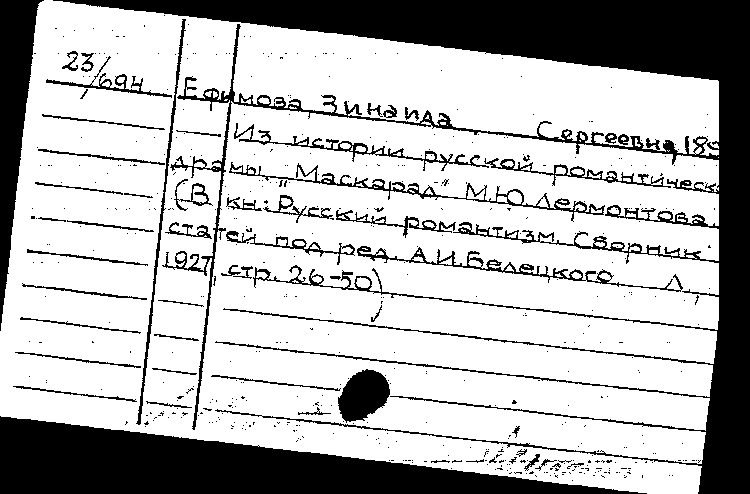 23/69н
Ефимова, Зинаида Сергеевна, 189
Из истории русской романтическо
драмы. "Маскарад" М.Ю. Лермонтова.
(В кн.: "Русский романтизм. Сборник
статей под ред. А.И. Белецкого. Л.,
1927, стр. 26-50)